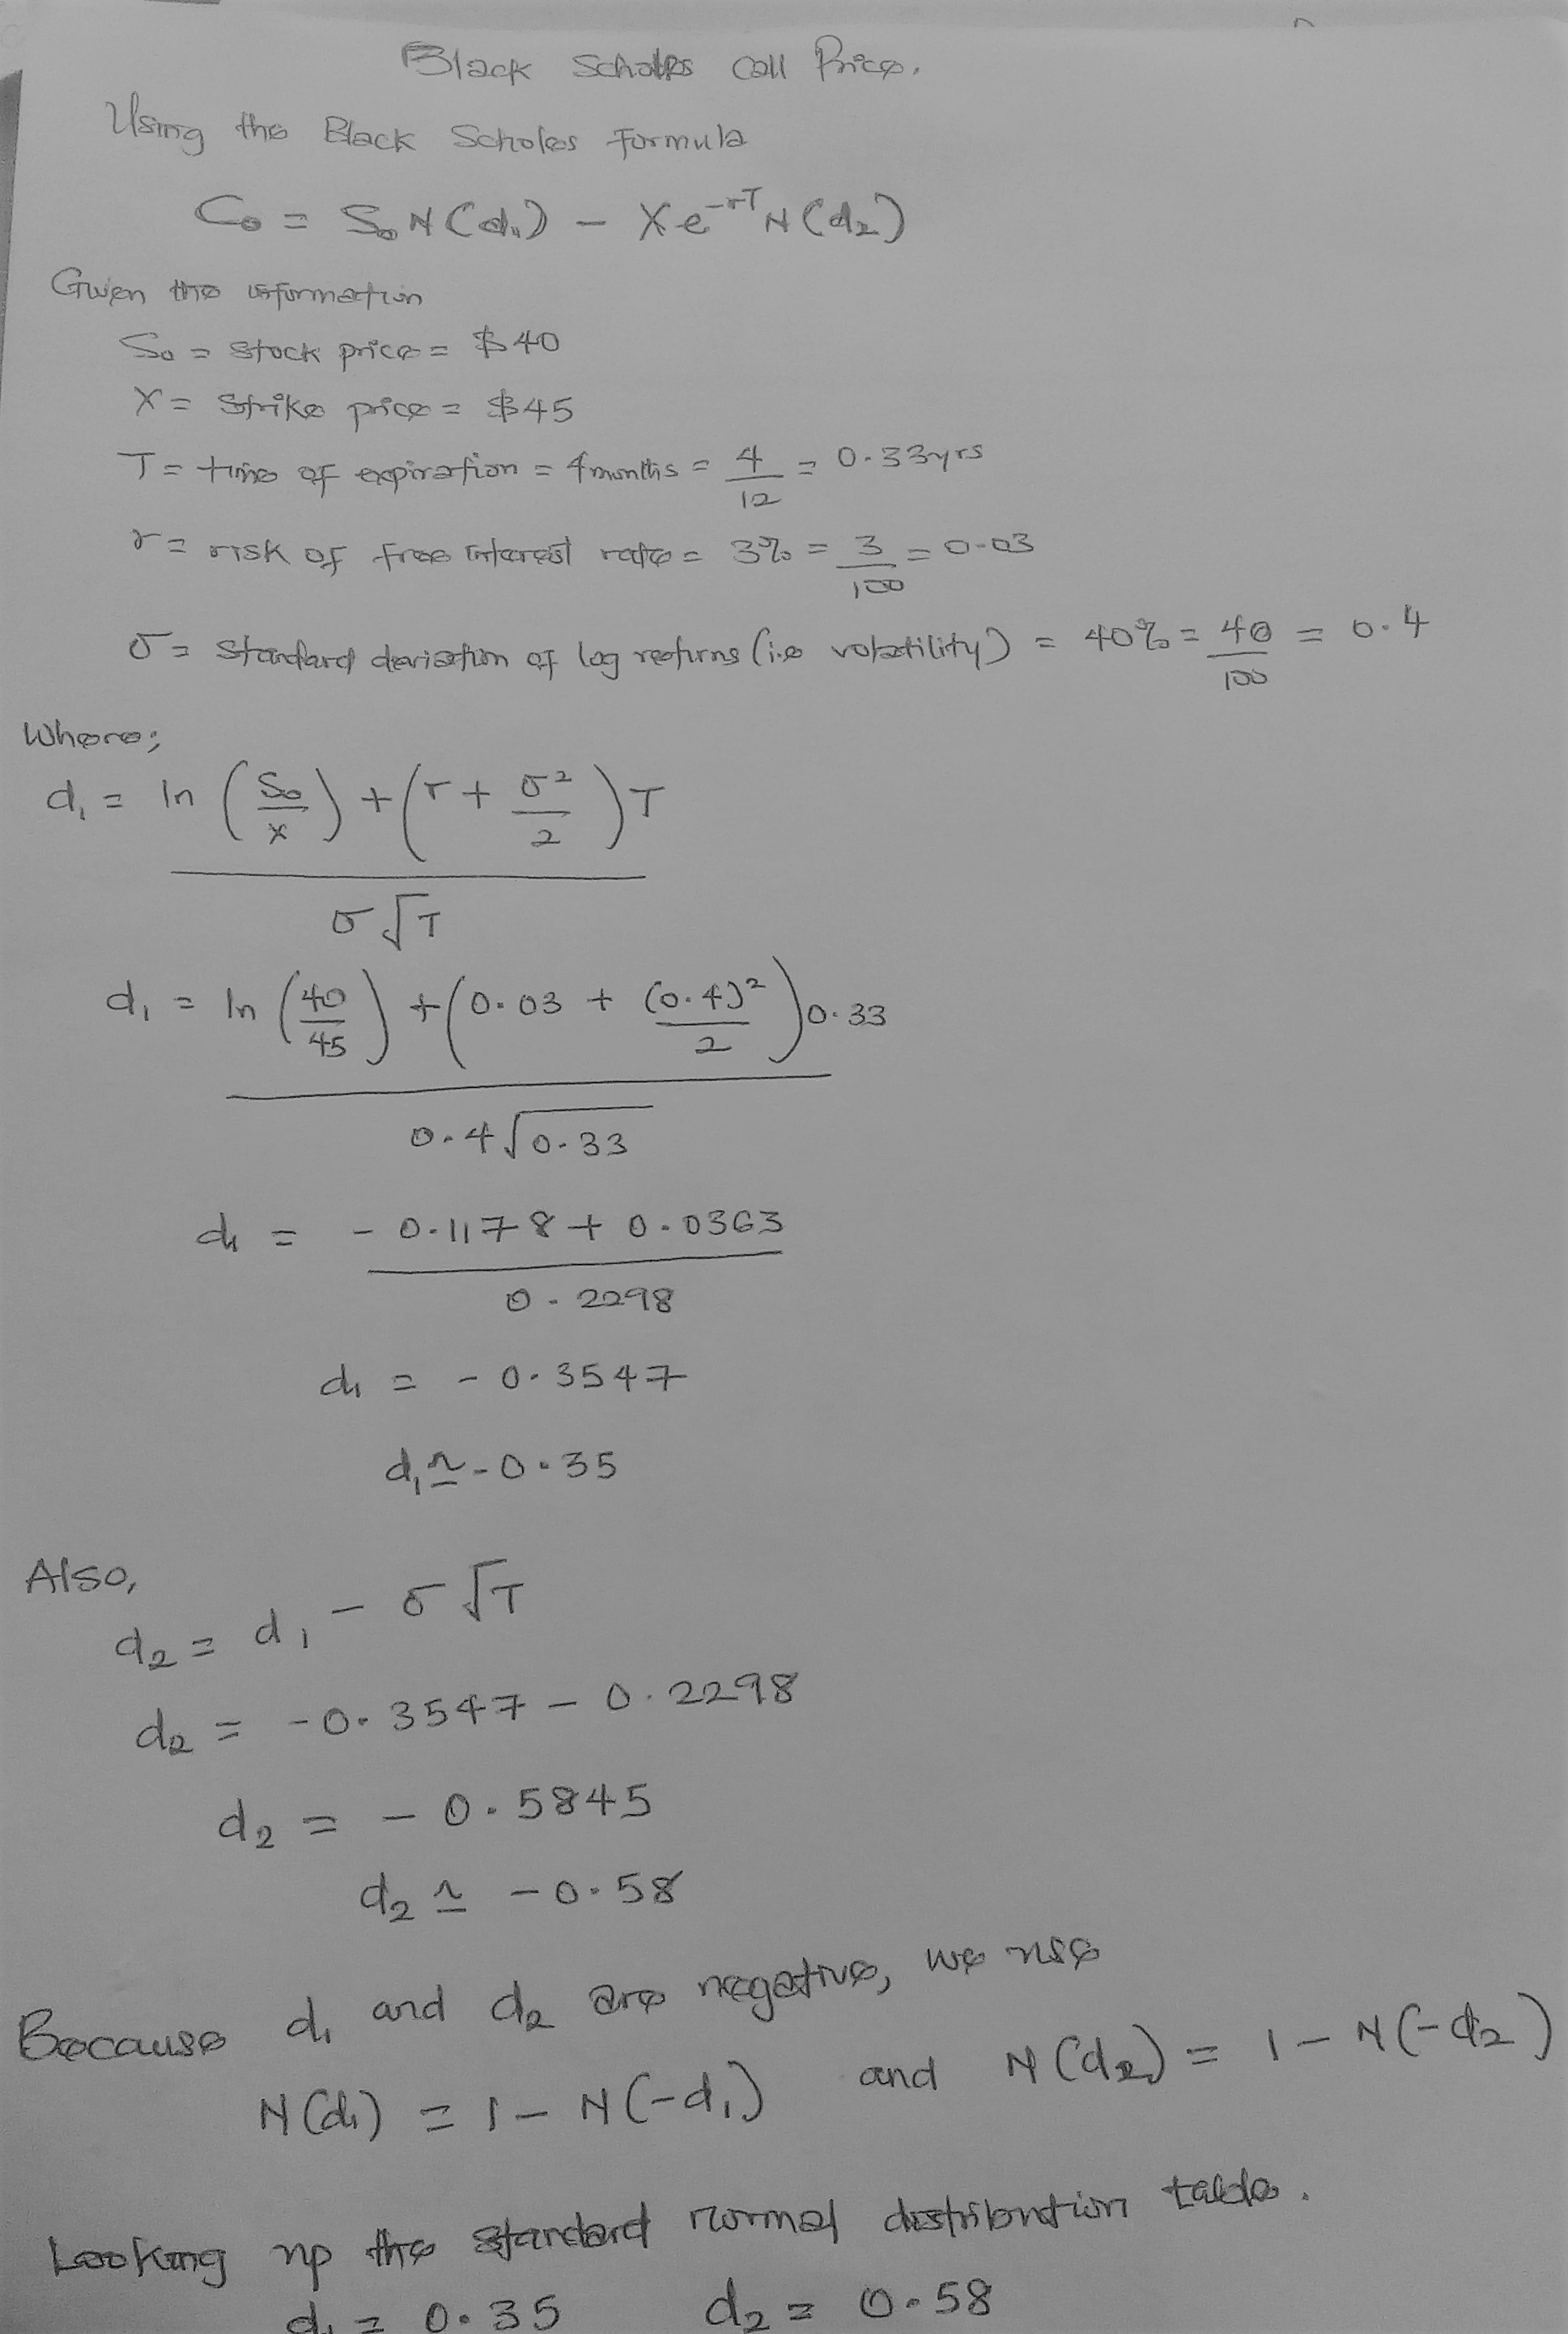 Black Scholes Call Price.
Using the Black Scholes Formula
C₀ = S₀N(d₁) - Xe^-rT N(d₂)
Given the information
S₀ = stock price = $40
X = strike price = $45
T = time of expiration = 4months = 4/12 = 0.33yrs
r = risk of free interest rate = 3% = 3/100 = 0.03
σ = standard deviation of log returns (i.e volatility) = 40% = 40/100 = 0.4
Where;
d₁ = ln (S₀/X) + (r + σ²/2) T
σ√T
d₁ = ln (40/45) + (0.03 + (0.4)²/2) 0.33
0.4√0.33
d₁ = - 0.1178 + 0.0363
0.2298
d₁ = - 0.3547
d₁ ≃ - 0.35
Also,
d₂ = d₁ - σ√T
d₂ = - 0.3547 - 0.2298
d₂ = - 0.5845
d₂ ≃ - 0.58
Because d₁ and d₂ are negative, we use
N(d₁) = 1 - N(-d₁) and N(d₂) = 1 - N(-d₂)
Looking up the standard normal distribution table.
d₁ = 0.35 d₂ = 0.58